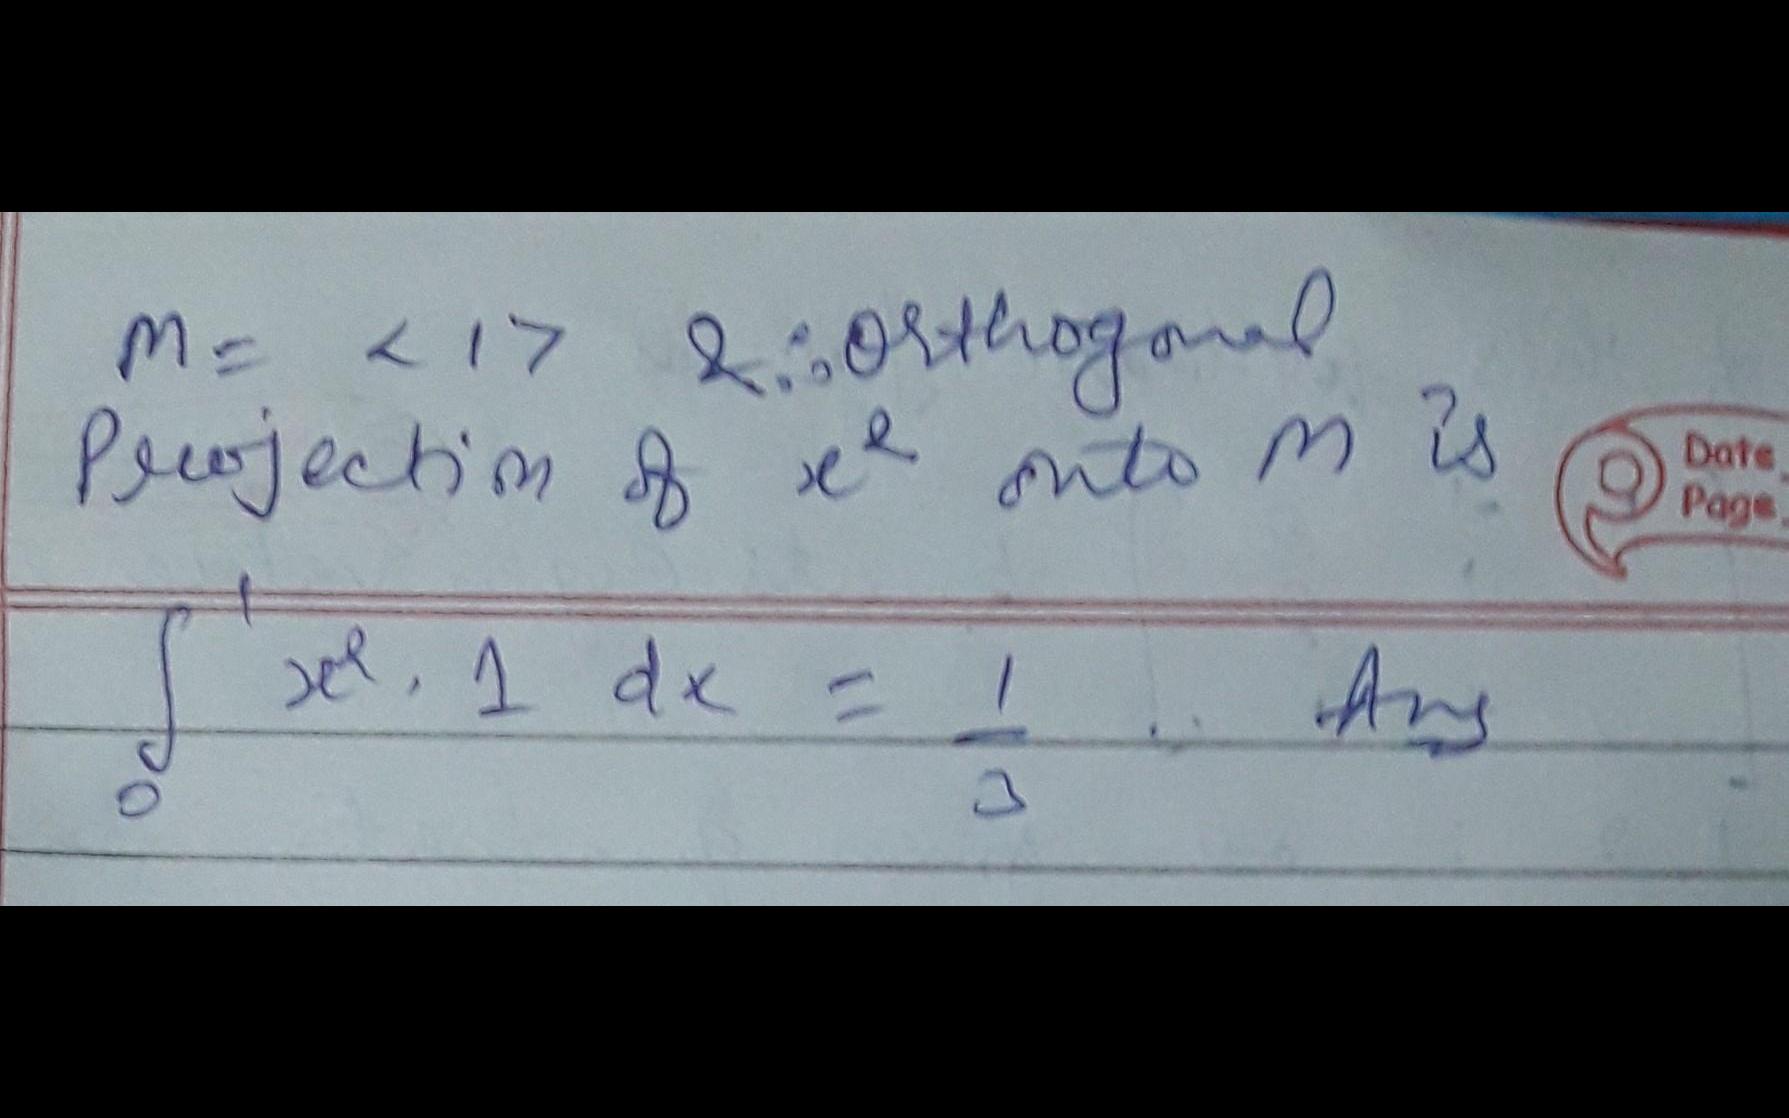 M = < 1 > & ∴ Orthogonal
Projection of x² onto M is
Date
Page
∫₀¹ x² . 1 dx = 1/3 . Ans